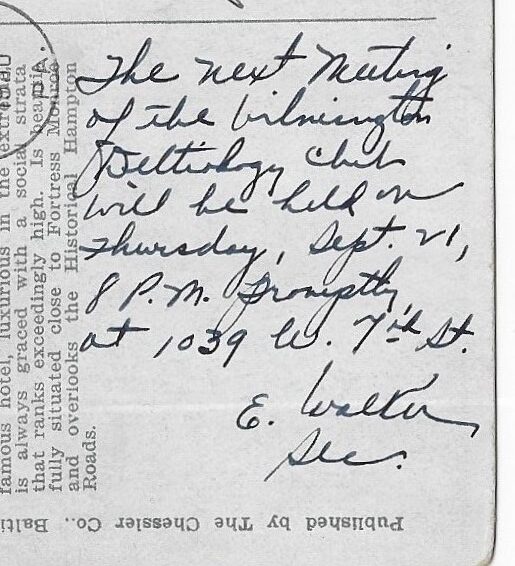 The next Meeting
of the Wilmington
Deltiology Club
will be held on
Thursday, Sept. 21,
8 P.M. Promptly,
at 1039 W. 7th St.
E. Walker
Sec.
famous hotel, luxurious in the extreme,
is always graced with a social strata
that ranks exceedingly high. Is beauti-
fully situated close to Fortress Monroe
and overlooks the Historical Hampton
Roads.
Published by The Chessler Co., Balti